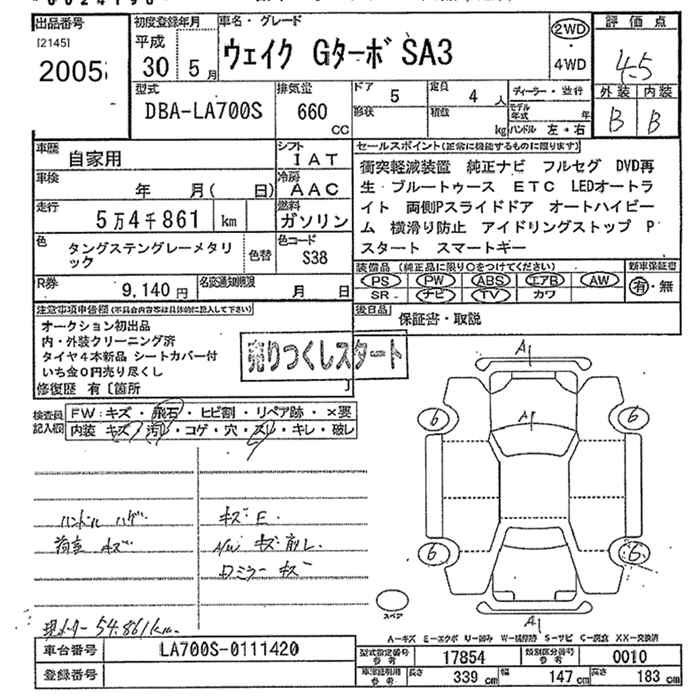 出品番号
[2145]
2005
初度登録年月
平成
30 5月
車名・グレード
ウェイク GターボSA3
2WD
4WD
評価点
4.5
外装 内装
B B
型式
DBA-LA700S
排気量
660
CC
ドア
5
形状
定員
4 人
積載
kg
ディーラー・並行
モデル年式 年
ハンドル 左・右
車歴
自家用
シフト
IAT
車検
年 月( 日)
冷房
AAC
走行
5万4千861 km
燃料
ガソリン
色
タングステングレーメタリ
ック
色替
色コード
S38
R券
9,140円
名変通知期限
月 日
セールスポイント(正常に機能するものに限ります)
衝突軽減装置 純正ナビ フルセグ DVD再
生 ブルートゥース ETC LEDオートラ
イト 両側Pスライドドア オートハイビー
ム 横滑り防止 アイドリングストップ P
スタート スマートキー
装備品(純正品に限り○をつけてください)
PS PW ABS エアB AW
SR ナビ TV カワ
新車保証書
有・無
後日品
保証書・取説
注意事項申告欄(不具合内容等は具体的に記入して下さい)
オークション初出品
内・外装クリーニング済
タイヤ4本新品 シートカバー付
いち金0円売り尽くし
修復歴 有〔箇所 〕
売りつくしスタート
検査員
記入欄
FW:キズ・飛石・ヒビ割・リペア跡・×要
内装 キズ・汚レ・コゲ・穴・スレ・キレ・破レ
ハンドル ハゲ
荷室 キズ
キズ E
A/W キズ 削レ
ロミラー キズ
現メーター 54.861km
A1
A1
A1
6 6
6 6
スペア
A-キズ E-エクボ U-凹み W-補修跡 S-サビ C-腐食 XX-交換済
車台番号
LA700S-0111420
登録番号
型式指定番号
参考
17854
類別区分番号
参考
0010
車庫証明用
参考
長さ 339 cm
幅 147 cm
高さ 183 cm